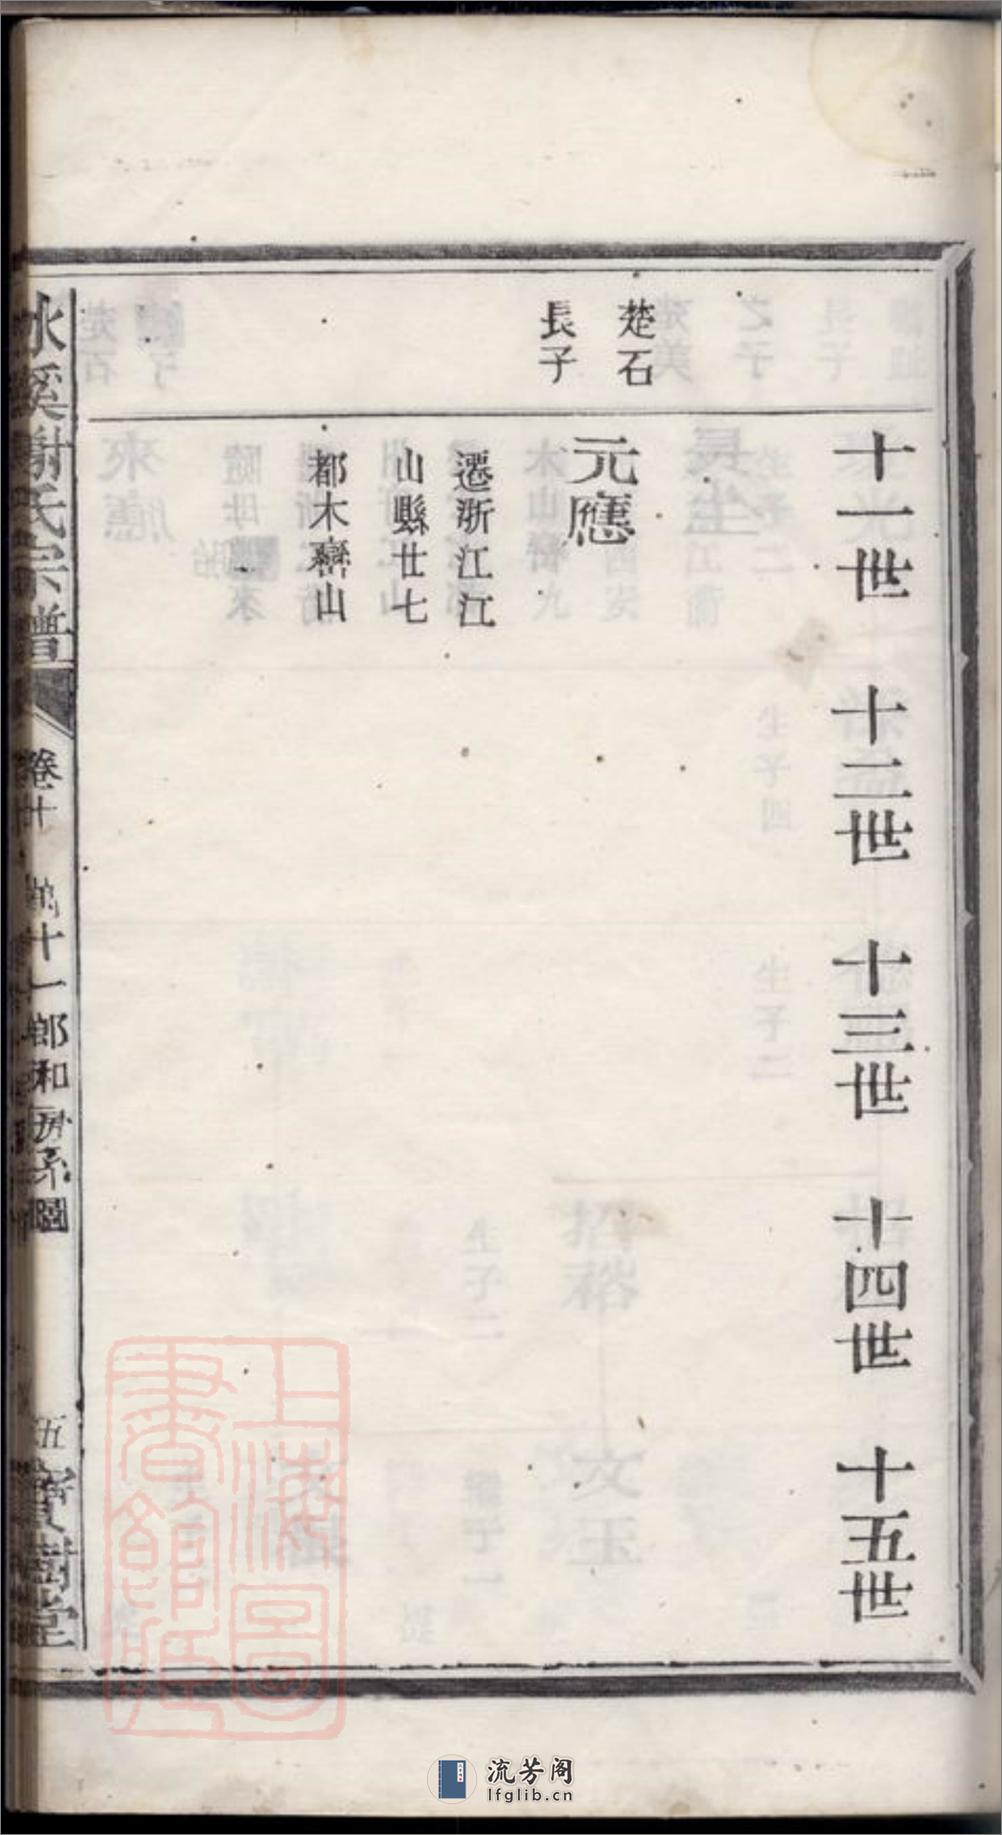 十一世
十二世
十三世
十四世
十五世
楚石
長子
元應
遷浙江江
山縣廿七
都木巒山
冰溪謝氏宗譜
卷十
十一郎和房系圖
五
寶樹堂
上海圖
書館藏
流芳阁
lfglib.cn